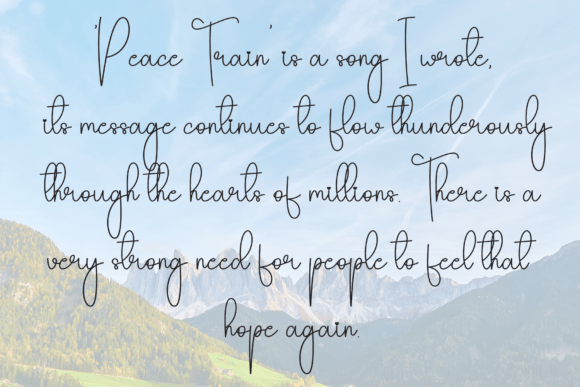 'Peace Train' is a song I wrote,
its message continues to flow thunderously
through the hearts of millions. There is a
very strong need for people to feel that
hope again.